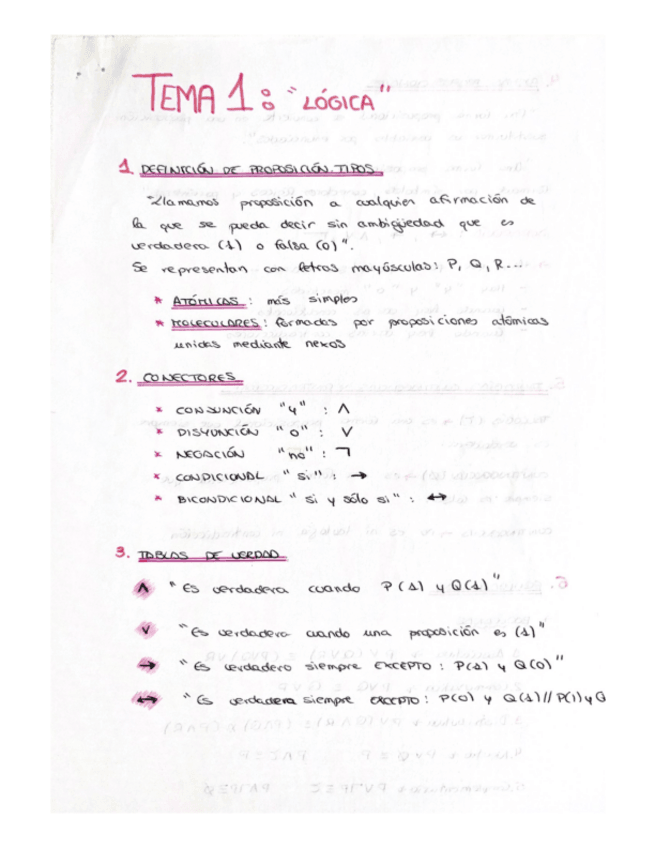 TEMA 1: "LÓGICA"
1. DEFINICIÓN DE PROPOSICIÓN. TIPOS
"Llamamos proposición a cualquier afirmación de
la que se pueda decir sin ambigüedad que es
verdadera (1) o falsa (0)".
Se representan con letras mayúsculas: P, Q, R...
* ATÓMICAS: más simples
* MOLECULARES: formadas por proposiciones atómicas
unidas mediante nexos
2. CONECTORES
* CONJUNCIÓN "y" : ∧
* DISYUNCIÓN "o" : ∨
* NEGACIÓN "no" : ¬
* CONDICIONAL "si" : →
* BICONDICIONAL "si y sólo si" : ↔
3. TABLAS DE VERDAD
∧ "Es verdadera cuando P(1) y Q(1)"
∨ "Es verdadera cuando una proposición es (1)"
→ "Es verdadero siempre EXCEPTO: P(1) y Q(0)"
↔ "Es verdadera siempre EXCEPTO: P(0) y Q(1)// P(1) y Q